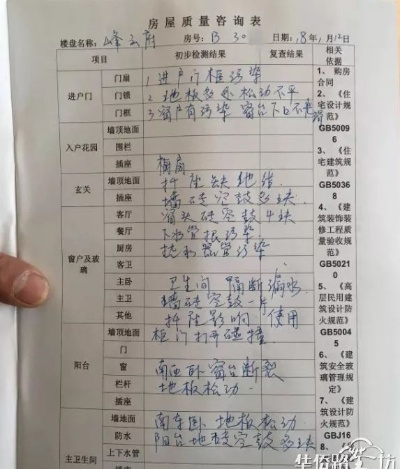 房屋质量咨询表
楼盘名称: 峰云府 房号: B 30 日期: 18年1月12日
项目 初步检测结果 复查结果 相关依据
进户门 门扇 1 进户门框污染
门锁 2 地板多处松动不平
门框 3 窗户有污染 窗台下口不
入户花园 墙顶地面
围栏
插座
玄关 墙地面 缺地
插座 墙砖空鼓多块
窗户及玻璃 客厅 砖空鼓4块
餐厅 下水管根污染
厨房 热水器管污染
客卫
主卧 卫生间 隔断漏水
主卫 墙砖空鼓一片
其他 影响 使用
墙顶地面 柜门打开碰撞
阳台 门
窗 南西卧窗台断裂
栏杆 地板松动
插座
主卫生间 墙地面 南东卧 地板松动
防水 阳台地砖空鼓多块
上下水管
1、购房合同
2、《住宅设计规范》
GB50096
3、《住宅建筑规范》
GB50368
4、《建筑装饰装修工程质量验收规范》
GB50210
5、《高层民用建筑设计防火规范》
GB50045
6、《建筑安全玻璃管理规定》
7、《建筑设计防火规范》
GBJ16
8、